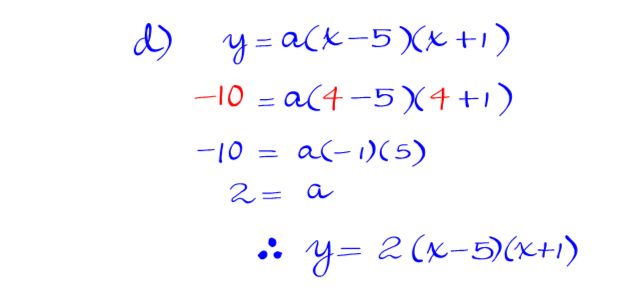 d) y = a(x-5)(x+1)
-10 = a(4-5)(4+1)
-10 = a(-1)(5)
2 = a
∴ y = 2(x-5)(x+1)